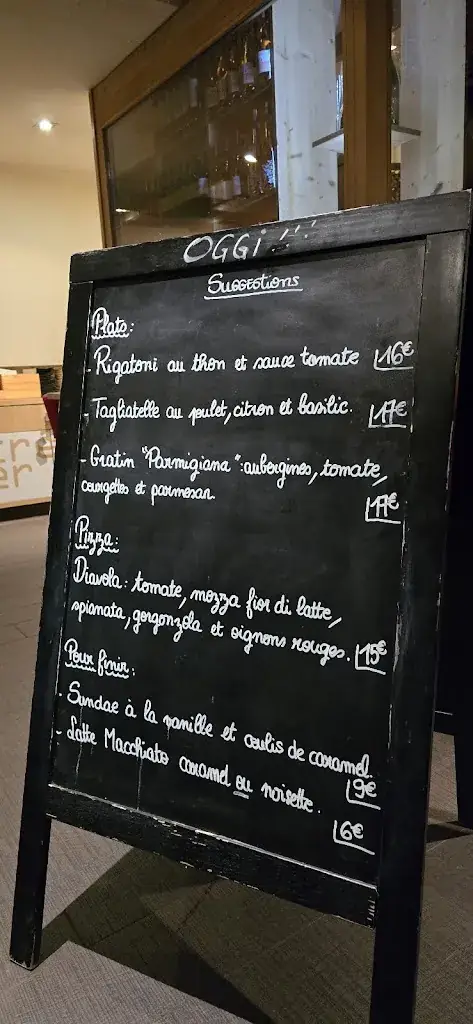 OGGi !!!
Suggestions
Plats:
- Rigatoni au thon et sauce tomate 16€
- Tagliatelle au poulet, citron et basilic. 17€
- Gratin "Parmigiana": aubergines, tomate,
courgettes et parmesan
17€
Pizza:
Diavola: tomate, mozza fior di latte,
spianata, gorgonzola et oignons rouges. 15€
Pour finir:
- Sundae à la vanille et coulis de caramel.
9€
- Latte Macchiato caramel ou noisette.
6€